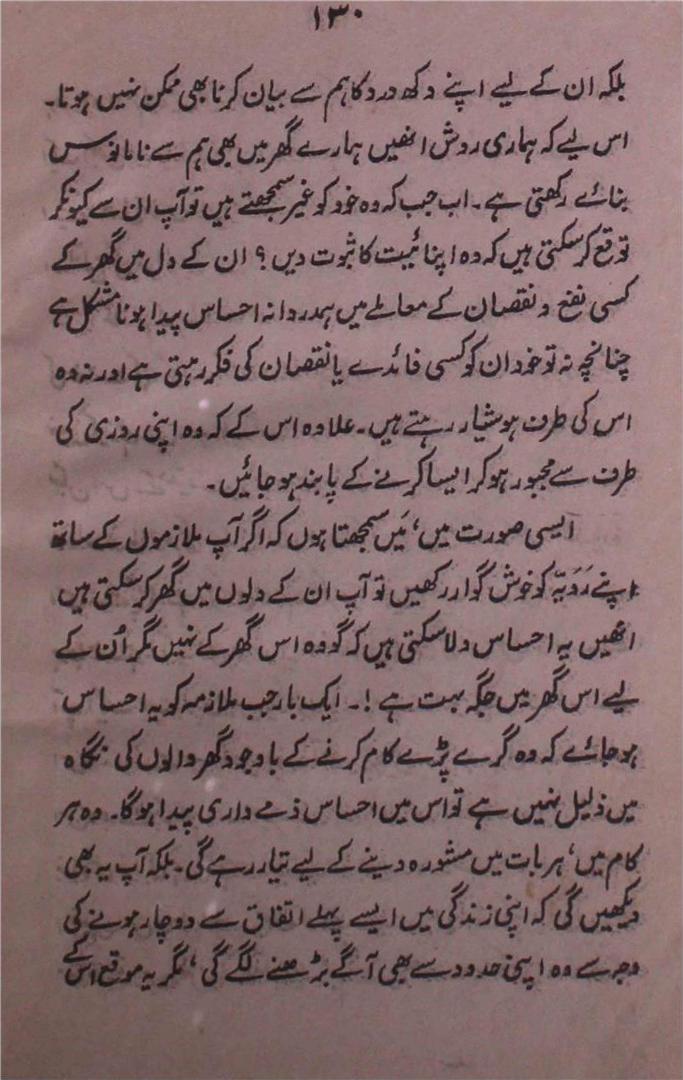 ۱۳۰
بلکہ ان کے لیے اپنے دکھ درد کا ہم سے بیان کرنا بھی ممکن نہیں ہوتا۔
اس لیے کہ ہماری روش انھیں ہمارے گھر میں بھی ہم سے نامانوس
بنائے رکھتی ہے۔ اب جب کہ وہ خود کو غیر سمجھتے ہیں تو آپ ان سے کیونکر
توقع کر سکتی ہیں کہ وہ اپنائیت کا ثبوت دیں؟ ان کے دل میں گھر کے
کسی نفع و نقصان کے معاملے میں ہمدردانہ احساس پیدا ہونا مشکل ہے
چنانچہ نہ تو خود ان کو کسی فائدے یا نقصان کی فکر رہتی ہے اور نہ وہ
اس کی طرف ہوشیار رہتے ہیں۔ علاوہ اس کے کہ وہ اپنی روزی کی
طرف سے مجبور ہو کر ایسا کرنے کے پابند ہو جائیں۔
ایسی صورت میں، مَیں سمجھتا ہوں کہ اگر آپ ملازموں کے ساتھ
اپنے رَوَیّہ کو خوش گوار رکھیں تو آپ ان کے دلوں میں گھر کر سکتی ہیں
انھیں یہ احساس دلا سکتی ہیں کہ گو وہ اس گھر کے نہیں مگر اُن کے
لیے اس گھر میں جگہ بہت ہے!۔ ایک بار جب ملازمہ کو یہ احساس
ہو جائے کہ وہ گرے پڑے کام کرنے کے باوجود گھر والوں کی نگاہ
میں ذلیل نہیں ہے تو اس میں احساس ذمے داری پیدا ہوگا۔ وہ ہر
کام میں، ہر بات میں مشورہ دینے کے لیے تیار رہے گی۔ بلکہ آپ یہ بھی
دیکھیں گی کہ اپنی زندگی میں ایسے پہلے اتفاق سے دو چار ہونے کی
وجہ سے وہ اپنی حدود سے بھی آگے بڑھنے لگے گی، مگر یہ موقع اس کے